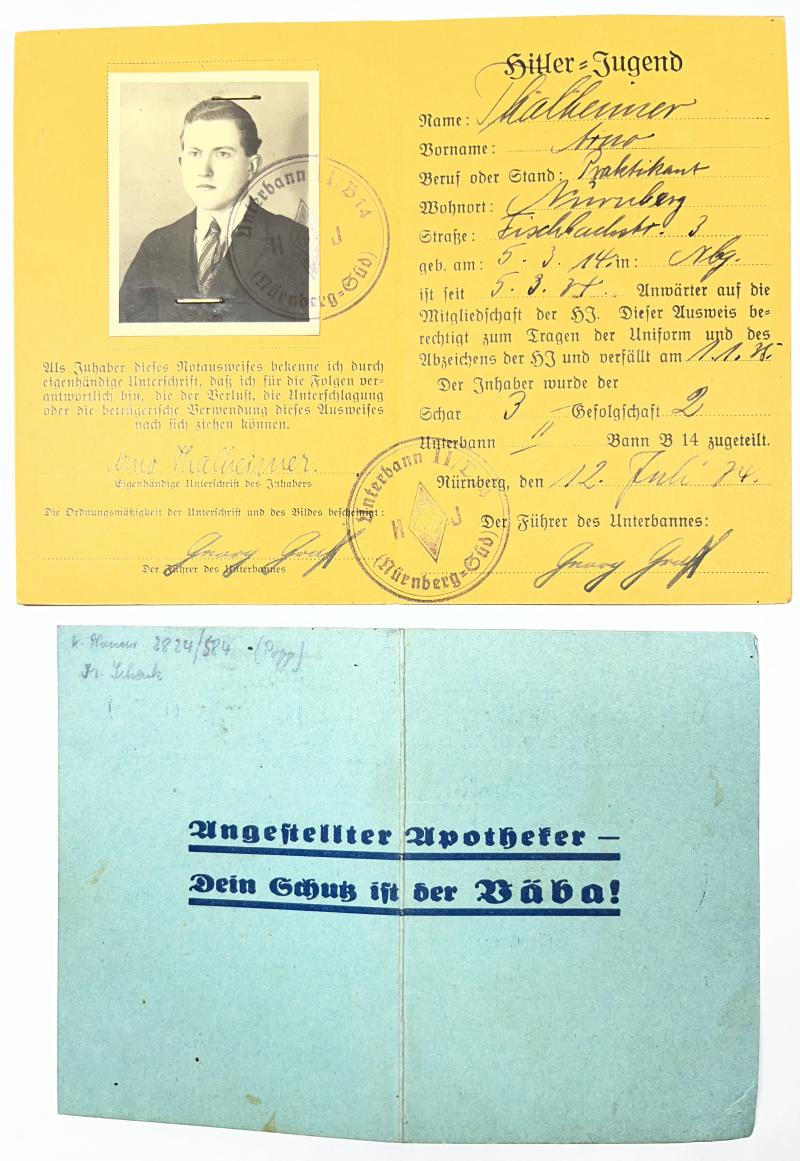 Hitler-Jugend
Name: Thalheimer
Vorname: Arno
Beruf oder Stand: Praktikant
Wohnort: Nürnberg
Straße: Fischbachstr. 3
geb. am: 5. 3. 14. in: Nbg.
ist seit 5. 3. 34. Anwärter auf die
Mitgliedschaft der HJ. Dieser Ausweis be-
rechtigt zum Tragen der Uniform und des
Abzeichens der HJ und verfällt am 1. 1. 35.
Der Inhaber wurde der
Schar 3 Gefolgschaft 2
Unterbann II Bann B 14 zugeteilt.
Nürnberg, den 12. Juli 34.
Der Führer des Unterbannes:
Unterbann II/B 14
H J
(Nürnberg=Süd)
Als Inhaber dieses Notausweises bekenne ich durch
eigenhändige Unterschrift, daß ich für die Folgen ver-
antwortlich bin, die der Verlust, die Unterschlagung
oder die betrügerische Verwendung dieses Ausweises
nach sich ziehen können.
Arno Thalheimer.
Eigenhändige Unterschrift des Inhabers
Die Ordnungsmäßigkeit der Unterschrift und des Bildes bescheinigt:
Der Führer des Unterbannes
Unterbann II/B 14
H J
(Nürnberg=Süd)
2824/584
Angestellter Apotheker —
Dein Schutz ist der Väba!